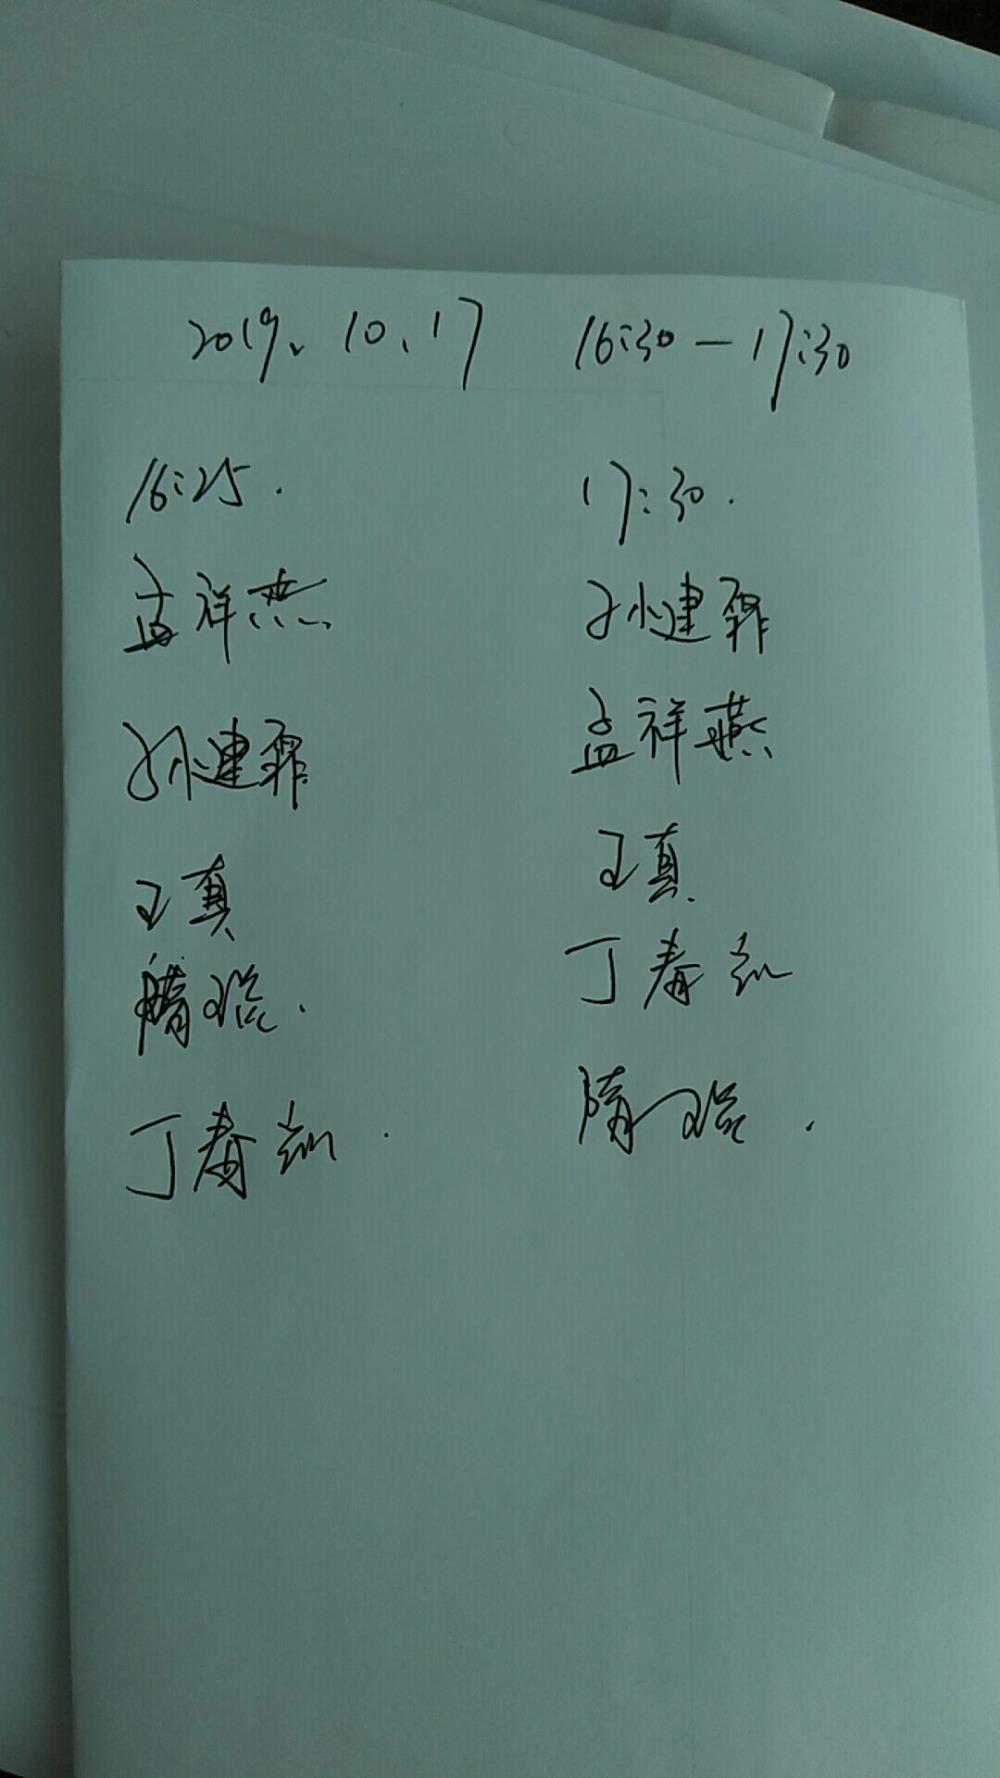 2019.10.17 16:30-17:30
16:25.
孟祥燕
孙建霏
王真
隋
丁春
17:30.
孙建霏
孟祥燕
王真
丁春
隋